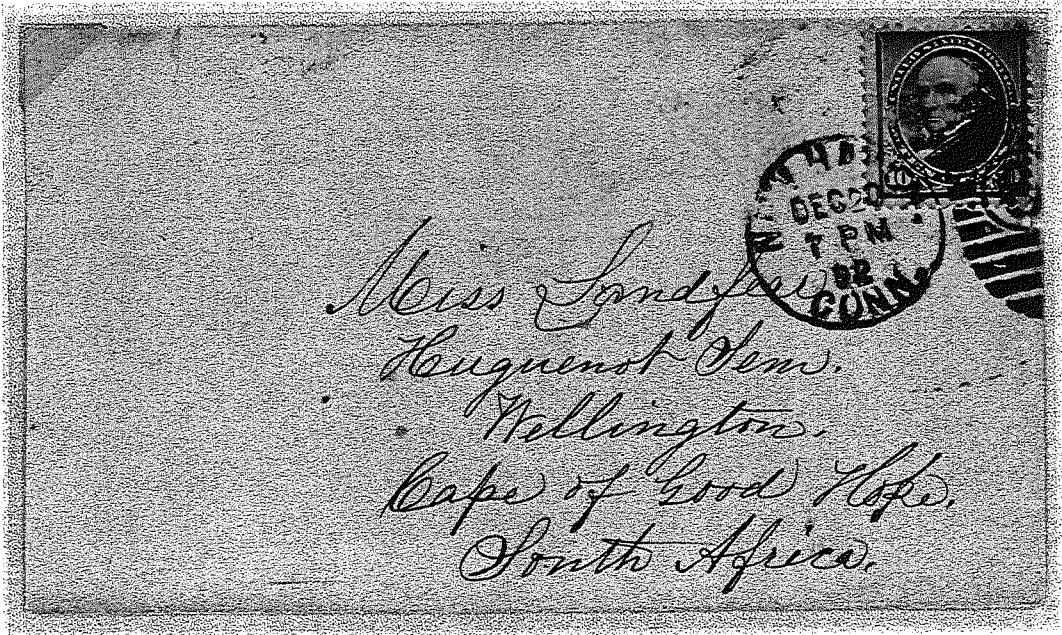 DEC 20
7 PM
92
CONN.
10
Miss Landfear
Huguenot Sem.
Wellington.
Cape of Good Hope.
South Africa.